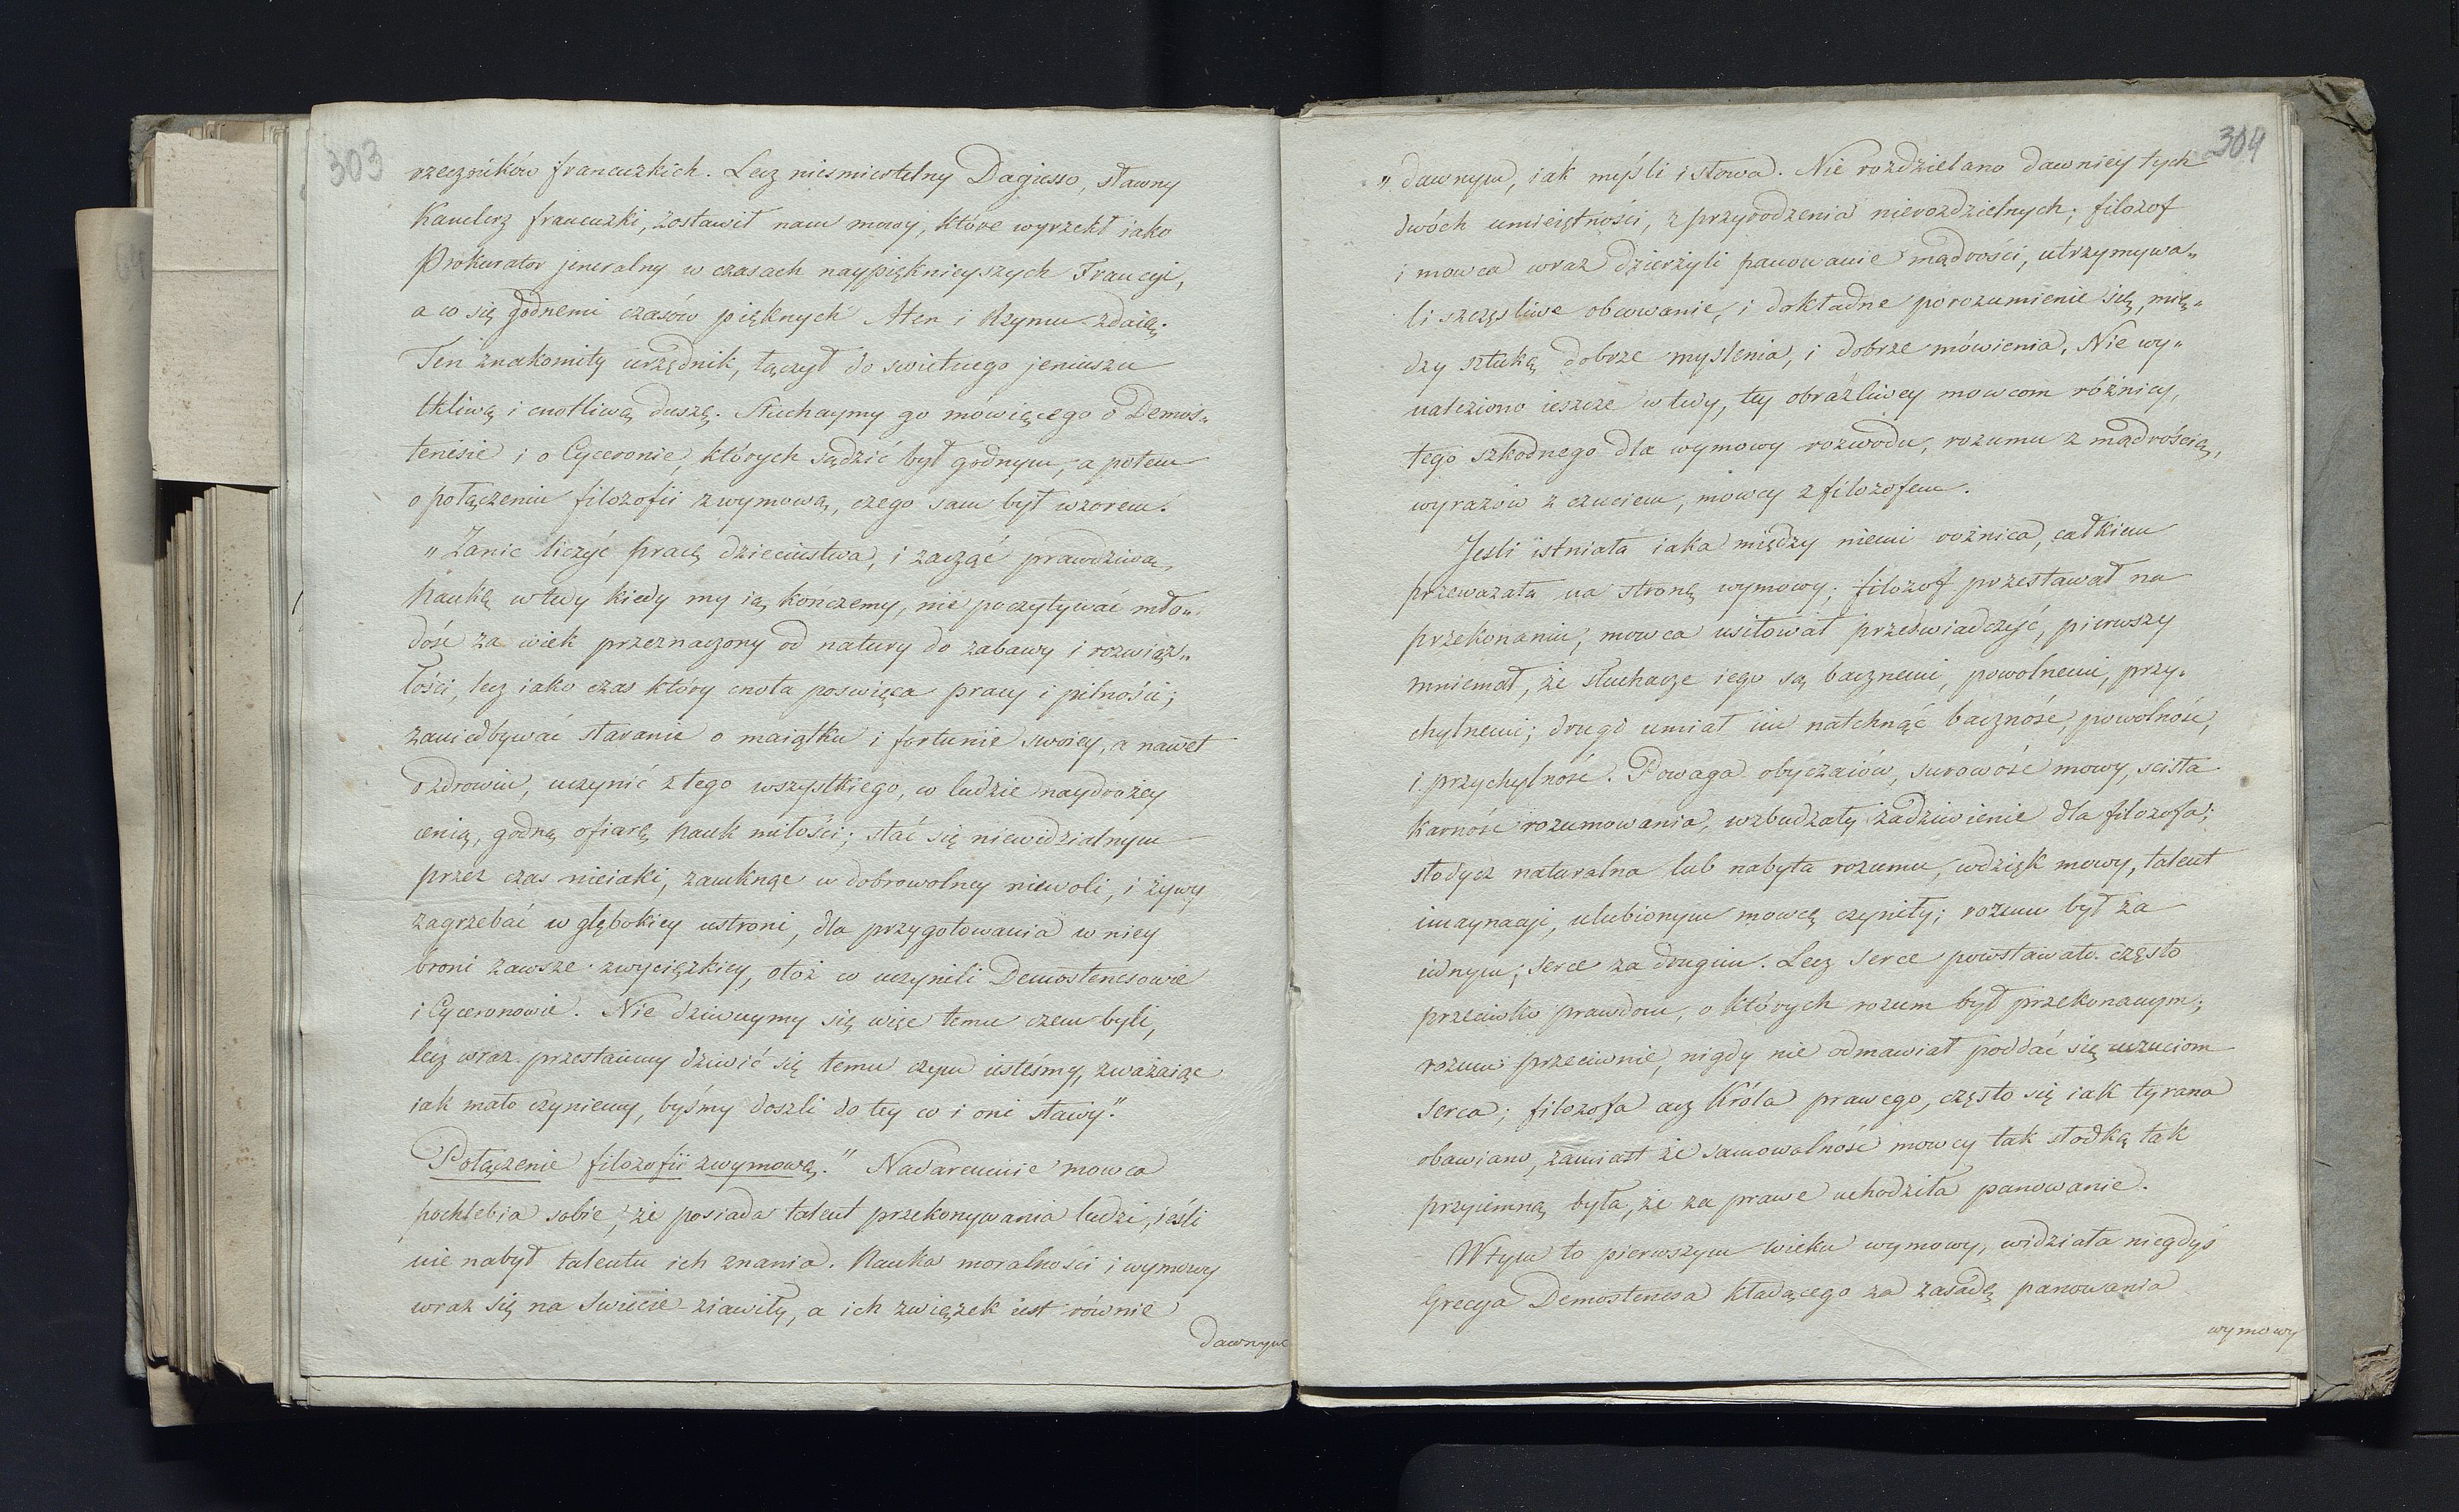 303
rzeczników francuzkich. Lecz nieśmiertelny Dagiesso, sławny
Kanclerz francuzki, zostawił nam mowy, które wyrzekł iako
Prokurator jeneralny w czasach naypięknieyszych Francyi,
a co się godnemi czasów pięknych Aten i Rzymu zdaią.
Ten znakomity urzędnik, łączył do swietnego jeniuszu
tkliwą i cnotliwą duszę. Słuchaymy go mówiącego o Demos„
tenisie i o Cyceronie, których sądzić był godnym, a potem
o połączeniu filozofii z wymową, czego sam był wzorem.
„Zanic liczyć pracę dzieciństwa, i zacząć prawdziwą
naukę wtedy kiedy my ią kończemy, nie poczytywać mło„
dość za wiek przeznaczony od natury do zabawy i rozwiąz„
łości, lecz iako czas który cnota poswięca pracy i pilności;
zaniedbywać staranie o maiątku i fortunie swoiey, a nawet
o zdrowiu, uczynić z tego wszystkiego, co ludzie naydrożey
cenią, godną ofiarę nauk miłości; stać się niewidzialnym
przez czas nieiaki, zamknąć w dobrowolney niewoli, i żywy
zagrzebać w głębokiey ustroni, dla przygotowania w niey
broni zawsze zwycięzkiey, otoż co uczynili Demostenesowie
i Cyceronowie. Nie dziwuymy się więc temu czem byli,
lecz wraz przestańmy dziwić się temu czym iesteśmy, zważaiąc
iak mało czyniemy, byśmy doszli do tey co i oni sławy."
Połączenie filozofii z wymową." Nadaremnie mowca
pochlebia sobie, że posiada talent przekonywania ludzi, ieśli
nie nabył talentu ich znania. Nauka moralności i wymowy
wraz się na świecie ziawiły, a ich związek iest równie
dawnym
304
„dawnym, iak myśli i słowa. Nie rozdzielano dawniey tych
dwóch umieiętności, z przyrodzenia nierozdzielnych; filozof
i mowca wraz dzierżyli panowanie mądrości, utrzymywa„
li szczęsliwe obcowanie, i dokładne porozumienie się, mię„
dzy sztuką dobrze myslenia, i dobrze mówienia. Nie wy„
naleziono ieszcze wtedy, tey obraźliwey mowcom różnicy,
tego szkodnego dla wymowy rozwodu, rozumu z mądrością,
wyrazów z czuciem, mowcy z filozofem.
Jesli istniała iaka między niemi rożnica, całkiem
przeważała na stronę wymowy; filozof przestawał na
przekonaniu; mowca usiłował przeświadczyć, pierwszy
mniemał, że słuchacze iego są bacznemi, powolnemi, przy„
chylnemi; drugi umiał im natchnąć baczność, powolność,
i przychylność. Powaga obyczaiów, surowość mowy, scisła
karność rozumowania, wzbudzały zadziwienie dla filozofa;
słodycz naturalna lub nabyta rozumu, wdzięk mowy, talent
imaynacyi, ulubionym mowcę czyniły; rozum był za
iednym; serce za drugim. Lecz serce powstawało często
przeciwko prawdom, o których rozum był przekonanym;
rozum przeciwnie, nigdy nie odmawiał poddać się uczuciom
serca; filozofa acz Króla prawego, często się iak tyrana
obawiano, zamiast że samowolność mowcy tak słodką tak
przyiemną była, że za prawe uchodziła panowanie.
W tym to pierwszym wieku wymowy, widziała niegdyś
Grecya Demostenesa kładącego za zasadę panowania
wymowy